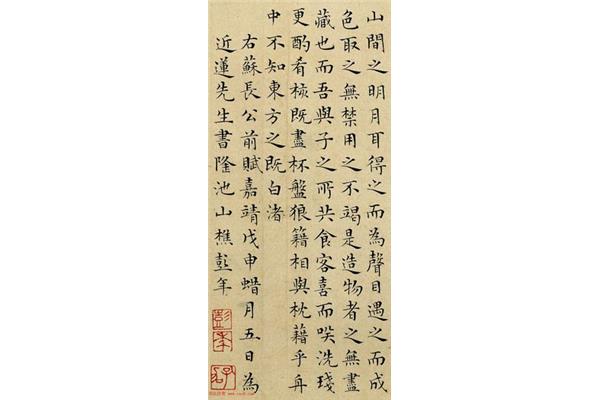 山間之明月耳得之而為聲目遇之而成
色取之無禁用之不竭是造物者之無盡
藏也而吾與子之所共食客喜而笑洗琖
更酌肴核既盡杯盤狼籍相與枕藉乎舟
中不知東方之既白渚
右蘇長公前賦嘉靖戊申蜡月五日為
近蓮先生書隆池山樵彭年
彭年